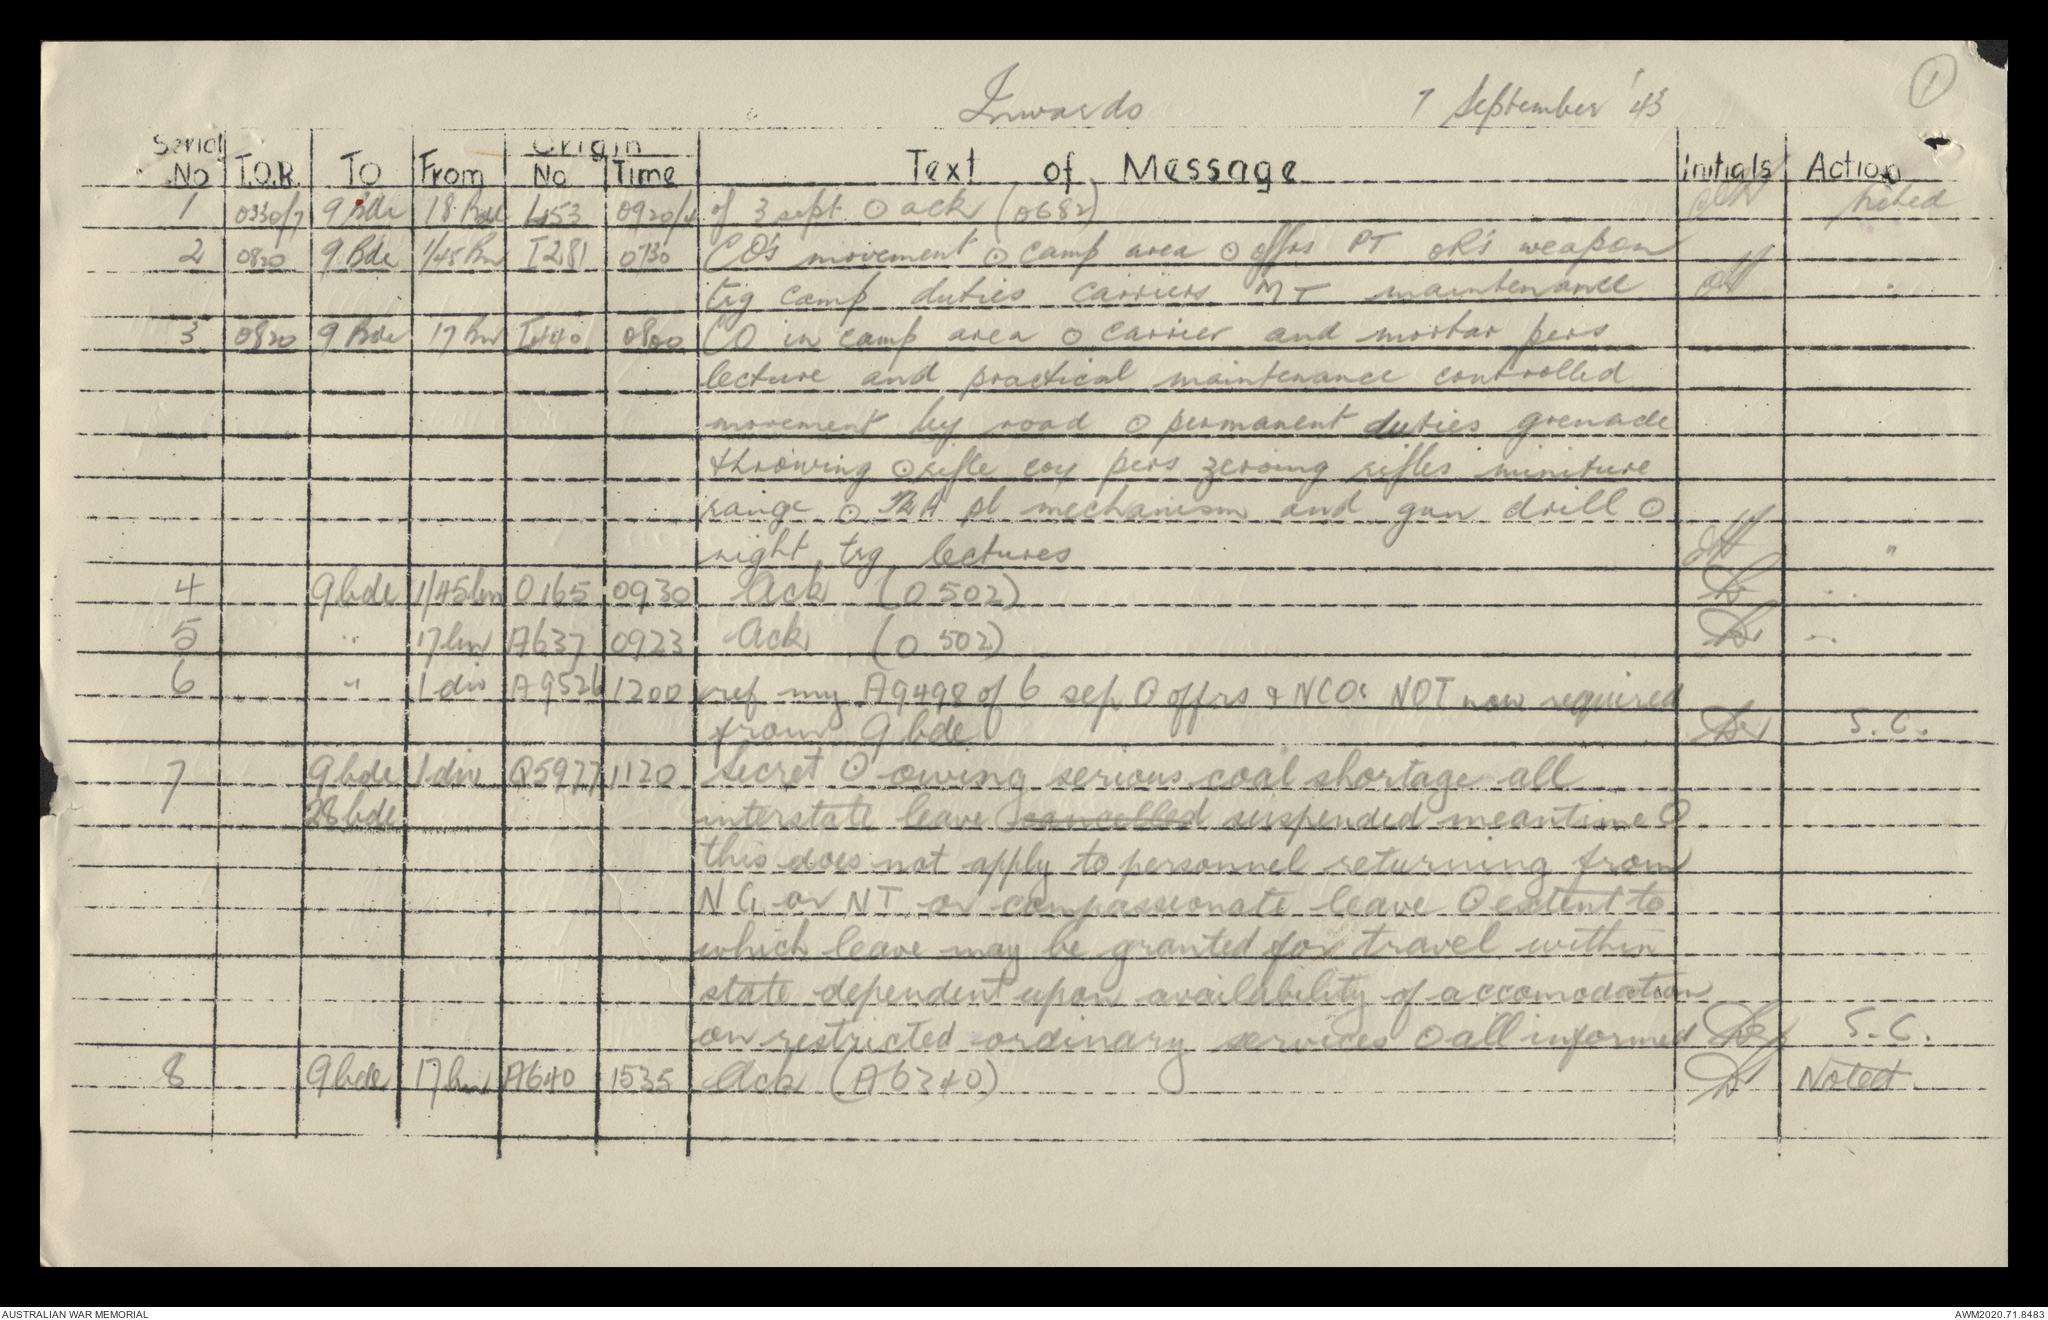 1
Inwards 7 September '43
Serial No T.O.R. To From Origin No Time Text of Message Initials Action
1 0330/7 9 Bde 18 Bde L453 0920/4 of 3 sept ⊙ ack (0682) Noted
2 0820 9 Bde 1/45 Bn I281 0730 CO's movement ⊙ camp area ⊙ offrs PT oR's weapon
trg camp duties carriers MT maintenance "
3 0820 9 Bde 17 Bn I440 0800 CO in camp area ⊙ carrier and mortar pers
lecture and practical maintenance controlled
movement by road ⊙ permanent duties grenade
throwing ⊙ rifle coy pers zeroing rifles miniture
range ⊙ pl mechanism and gun drill ⊙
night trg lectures "
4 9 bde 1/45 bn O165 0930 Ack (O 502) "
5 " 17 bn A637 0923 Ack (O 502) "
6 " 1 div A9526 1200 ref my A9498 of 6 sep ⊙ offrs & NCOs NOT now required
from 9 bde S.C.
7 9 bde 1 div Q5977 1120 Secret ⊙ owing serious coal shortage all
28 bde interstate leave cancelled suspended meantime ⊙
this does not apply to personnel returning from
NG or NT or compassionate leave ⊙ extent to
which leave may be granted for travel within
state dependent upon availability of accomodation
on restricted ordinary services ⊙ all informed S.C.
8 9 bde 17 bn A640 1535 Ack (A6340) Noted.
AUSTRALIAN WAR MEMORIAL AWM2020.71.8483